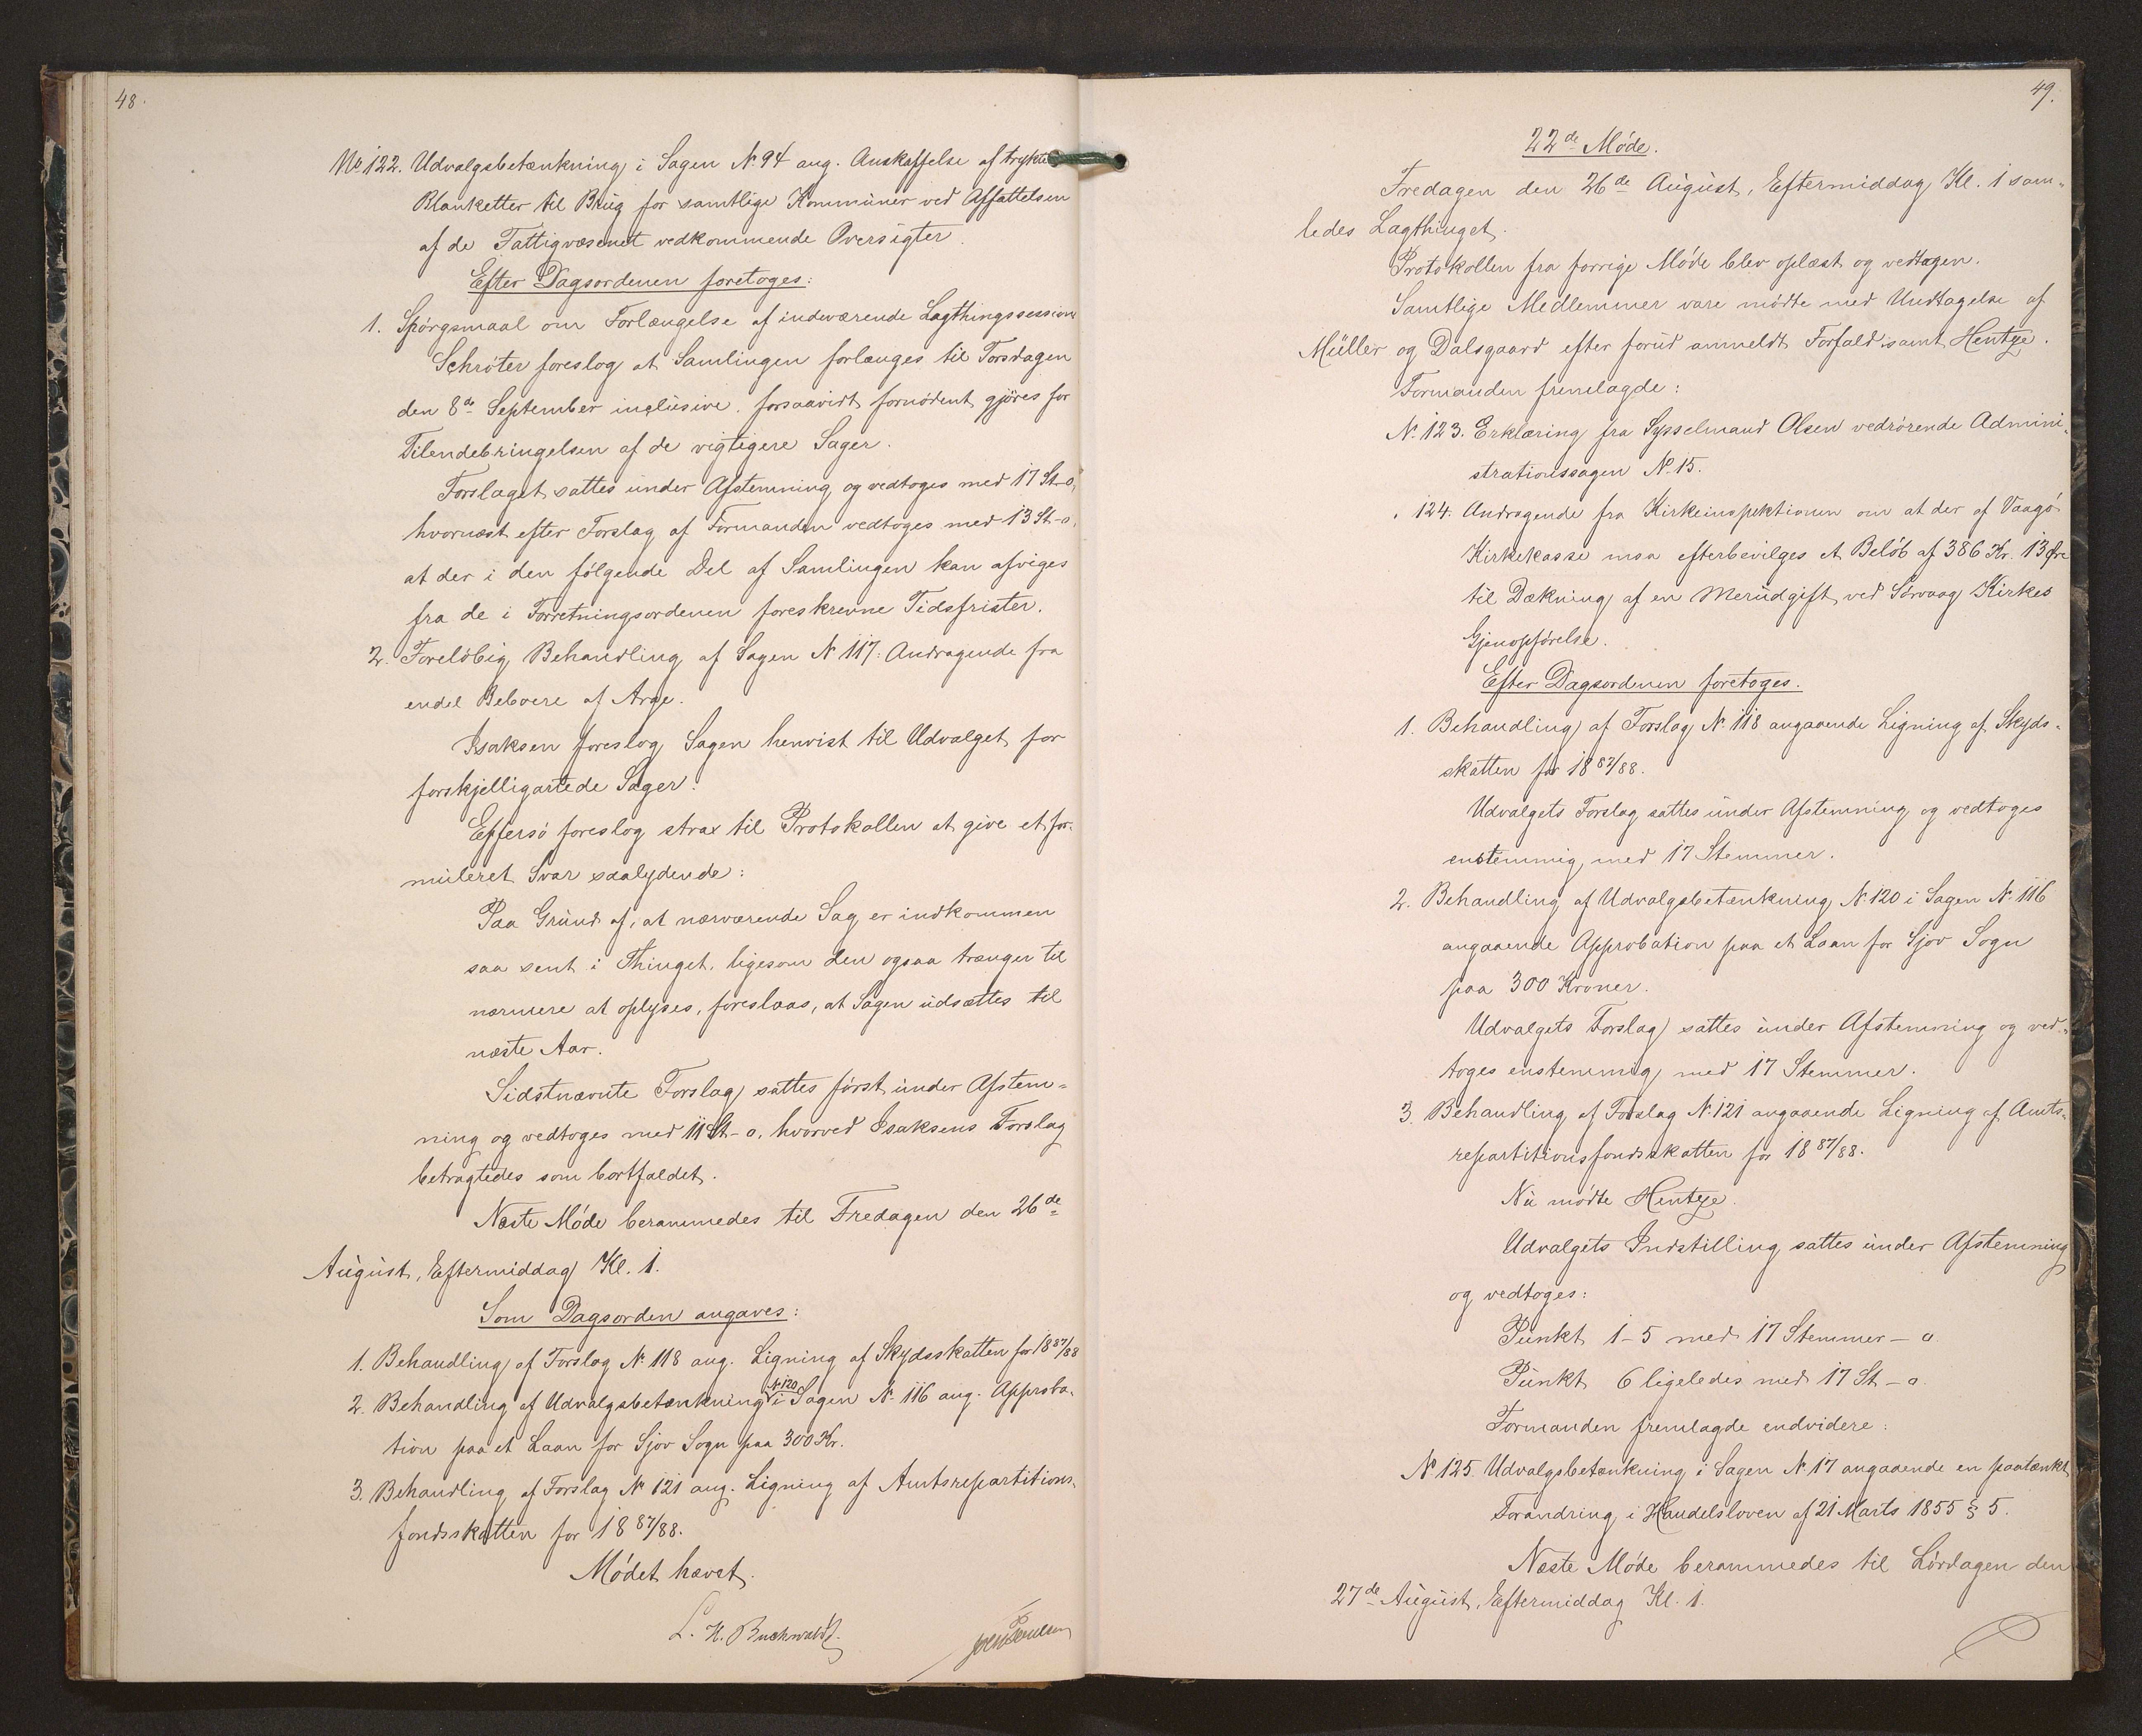 48.
No 122. Udvalgsbetænkning i Sagen N. 94 ang. Anskaffelse af trykte
Blanketter til Brug for samtlige Kommuner ved Affattelsen
af de Fattigvæsenet vedkommende Oversigter.
Efter Dagsordenen foretoges:
1. Spörgsmaal om Forlængelse af indeværende Lagthingssession
Schröter foreslog at Samlingen forlænges til Torsdagen
den 8de September inclusive, forsaavidt fornödent gjöres for
Tilendebringelsen af de vigtigere Sager.
Forslaget sattes under Afstemning og vedtoges med 17 St-o,
hvornæst efter Forslag af Formanden vedtoges med 13 St-o,
at der i den fölgende Del af Samlingen kan afviges
fra de i Forretningsordenen foreskrevne Tidsfrister.
2. Forelöbig Behandling af Sagen N 117: Andragende fra
endel Beboere af Arge.
Isaksen foreslog Sagen henvist til Udvalget for
forskjelligartede Sager.
Effersö foreslog strax til Protokollen at give et for-
muleret Svar saalydende:
Paa Grund af, at nærværende Sag er indkommen
saa sent i Thinget, ligesom den ogsaa trænger til
nærmere at oplyses, foreslaas, at Sagen udsættes til
næste Aar.
Sidstnævnte Forslag sattes först under Afstem=
ning og vedtoges med 11 St-o, hvorved Isaksens Forslag
betragtedes som bortfaldet.
Næste Möde berammedes til Fredagen den 26de
August, Eftermiddag Kl. 1.
Som Dagsorden angaves:
1. Behandling af Forslag N. 118 ang. Ligning af Skydsskatten for 1887/88
2. Behandling af Udvalgsbetænkning N. 120 i Sagen N. 116 ang. Approba-
tion paa et Laan for Sjov Sogn paa 300 Kr.
3. Behandling af Forslag N. 121 ang. Ligning af Amtsrepartitions-
fondsskatten for 1887/88.
Mödet hævet.
L. H. Buchwaldt.
49.
22de Möde.
Fredagen den 26de August, Eftermiddag Kl. 1 sam-
ledes Lagthinget.
Protokollen fra forrige Möde blev oplæst og vedtagen.
Samtlige Medlemmer vare mödte med Undtagelse af
Müller og Dalsgaard efter forud anmeldt Forfald samt Hentze.
Formanden fremlagde:
N. 123. Erklæring fra Sysselmand Olsen vedrörende Admini-
strationssagen N. 15.
. 124. Andragende fra Kirkeinspektionen om at der af Vaagö
Kirkekasse maa efterbevilges et Belöb af 386 Kr. 13 Øre
til Dækning af en Merudgift ved Sörvaag Kirkes
Gjenopförelse.
Efter Dagsordenen foretoges.
1. Behandling af Forslag N. 118 angaaende Ligning af Skyds-
skatten for 1887/88.
Udvalgets Forslag sattes under Afstemning og vedtoges
enstemmig med 17 Stemmer.
2. Behandling af Udvalgsbetænkning N. 120 i Sagen N. 116
angaaende Approbation paa et Laan for Sjov Sogn
paa 300 Kroner.
Udvalgets Forslag sattes under Afstemning og ved-
toges enstemmig med 17 Stemmer.
3. Behandling af Forslag N. 121 angaaende Ligning af Amts-
repartitionsfondsskatten for 1887/88.
Nu mödte Hentze.
Udvalgets Indstilling sattes under Afstemning
og vedtoges:
Punkt 1-5 med 17 Stemmer - o
Punkt 6 ligeledes med 17 St - o.
Formanden fremlagde endvidere:
N. 125. Udvalgsbetænkning i Sagen N. 17 angaaende en paatænkt
Forandring i Handelsloven af 21 Marts 1855 § 5.
Næste Möde berammedes til Lördagen den
27de August, Eftermiddag Kl. 1.